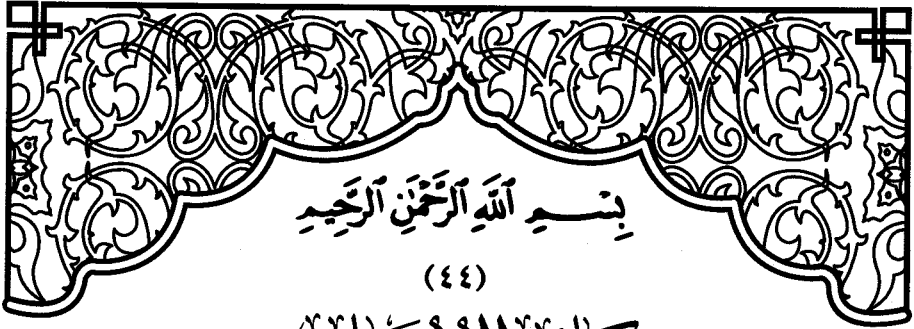 بِسْمِ ٱللَّهِ ٱلرَّحْمَٰنِ ٱلرَّحِيمِ
(٤٤)